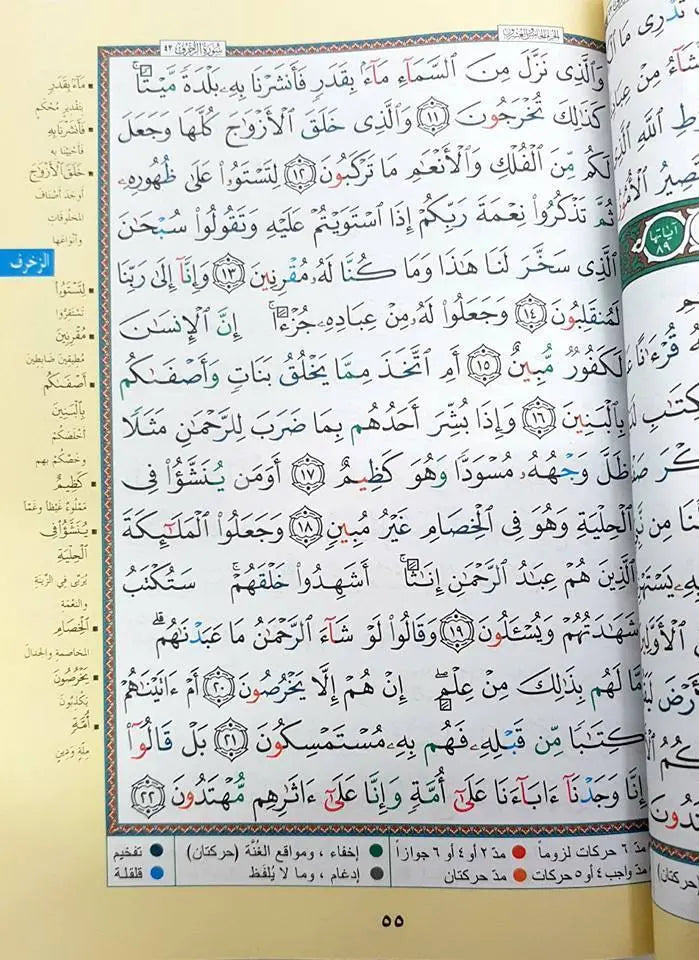 سُورَةُ الزُّخْرُفِ ٤٣
وَٱلَّذِى نَزَّلَ مِنَ ٱلسَّمَآءِ مَآءًۢ بِقَدَرٍ فَأَنشَرْنَا بِهِۦ بَلْدَةً مَّيْتًا ۚ
كَذَٰلِكَ تُخْرَجُونَ ١١ وَٱلَّذِى خَلَقَ ٱلْأَزْوَٰجَ كُلَّهَا وَجَعَلَ
لَكُم مِّنَ ٱلْفُلْكِ وَٱلْأَنْعَٰمِ مَا تَرْكَبُونَ ١٢ لِتَسْتَوُۥا۟ عَلَىٰ ظُهُورِهِۦ
ثُمَّ تَذْكُرُوا۟ نِعْمَةَ رَبِّكُمْ إِذَا ٱسْتَوَيْتُمْ عَلَيْهِ وَتَقُولُوا۟ سُبْحَٰنَ
ٱلَّذِى سَخَّرَ لَنَا هَٰذَا وَمَا كُنَّا لَهُۥ مُقْرِنِينَ ١٣ وَإِنَّآ إِلَىٰ رَبِّنَا
لَمُنقَلِبُونَ ١٤ وَجَعَلُوا۟ لَهُۥ مِنْ عِبَادِهِۦ جُزْءًا ۚ إِنَّ ٱلْإِنسَٰنَ
لَكَفُورٌ مُّبِينٌ ١٥ أَمِ ٱتَّخَذَ مِمَّا يَخْلُقُ بَنَاتٍ وَأَصْفَىٰكُم
بِٱلْبَنِينَ ١٦ وَإِذَا بُشِّرَ أَحَدُهُم بِمَا ضَرَبَ لِلرَّحْمَٰنِ مَثَلًا
ظَلَّ وَجْهُهُۥ مُسْوَدًّا وَهُوَ كَظِيمٌ ١٧ أَوَمَن يُنَشَّؤُا۟ فِى
ٱلْحِلْيَةِ وَهُوَ فِى ٱلْخِصَامِ غَيْرُ مُبِينٍ ١٨ وَجَعَلُوا۟ ٱلْمَلَٰٓئِكَةَ
ٱلَّذِينَ هُمْ عِبَٰدُ ٱلرَّحْمَٰنِ إِنَٰثًا ۚ أَشَهِدُوا۟ خَلْقَهُمْ ۚ سَتُكْتَبُ
شَهَٰدَتُهُمْ وَيُسْـَٔلُونَ ١٩ وَقَالُوا۟ لَوْ شَآءَ ٱلرَّحْمَٰنُ مَا عَبَدْنَٰهُم ۗ
مَّا لَهُم بِذَٰلِكَ مِنْ عِلْمٍ ۖ إِنْ هُمْ إِلَّا يَخْرُصُونَ ٢٠ أَمْ ءَاتَيْنَٰهُمْ
كِتَٰبًا مِّن قَبْلِهِۦ فَهُم بِهِۦ مُسْتَمْسِكُونَ ٢١ بَلْ قَالُوٓا۟
إِنَّا وَجَدْنَآ ءَابَآءَنَا عَلَىٰٓ أُمَّةٍ وَإِنَّا عَلَىٰٓ ءَاثَٰرِهِم مُّهْتَدُونَ ٢٢
مَآءً بِقَدَرٍ
بتقدير مُحْكَم
فَأَنشَرْنَا بِهِ
فأحْيَيْنا به
خَلَقَ ٱلْأَزْوَٰجَ
أوجَدَ أصْنافَ
المخلوقات
وأنْوَاعَها
الزخرف
لِتَسْتَوُۥا
تَسْتَقِرُّوا
مُقْرِنِينَ
مُطِيقين ضابطين
أَصْفَىٰكُم
بِٱلْبَنِينَ
أخْلَصَكُمْ
وخَصَّكُم بهم
كَظِيمٌ
مَمْلُوءٌ غَيْظاً وغَمّاً
يُنَشَّؤُا فِى
ٱلْحِلْيَةِ
يُرَبَّى في الزِّينَة
والنعْمَة
ٱلْخِصَامِ
المخاصمة والجدال
يَخْرُصُونَ
يَكْذِبُونَ
أُمَّةٍ
مِلَّةٍ ودِين
مدّ ٦ حركات لزوماً
مدّ ٢ أو ٤ أو ٦ جوازاً
إخفاء ، ومواقع الغُنَّة (حركتان)
تفخيم
مدّ واجب ٤ أو ٥ حركات
مدّ حركتان
إدغام ، وما لا يُلفَظ
قلقلة
٥٥
آياتها
٨٩